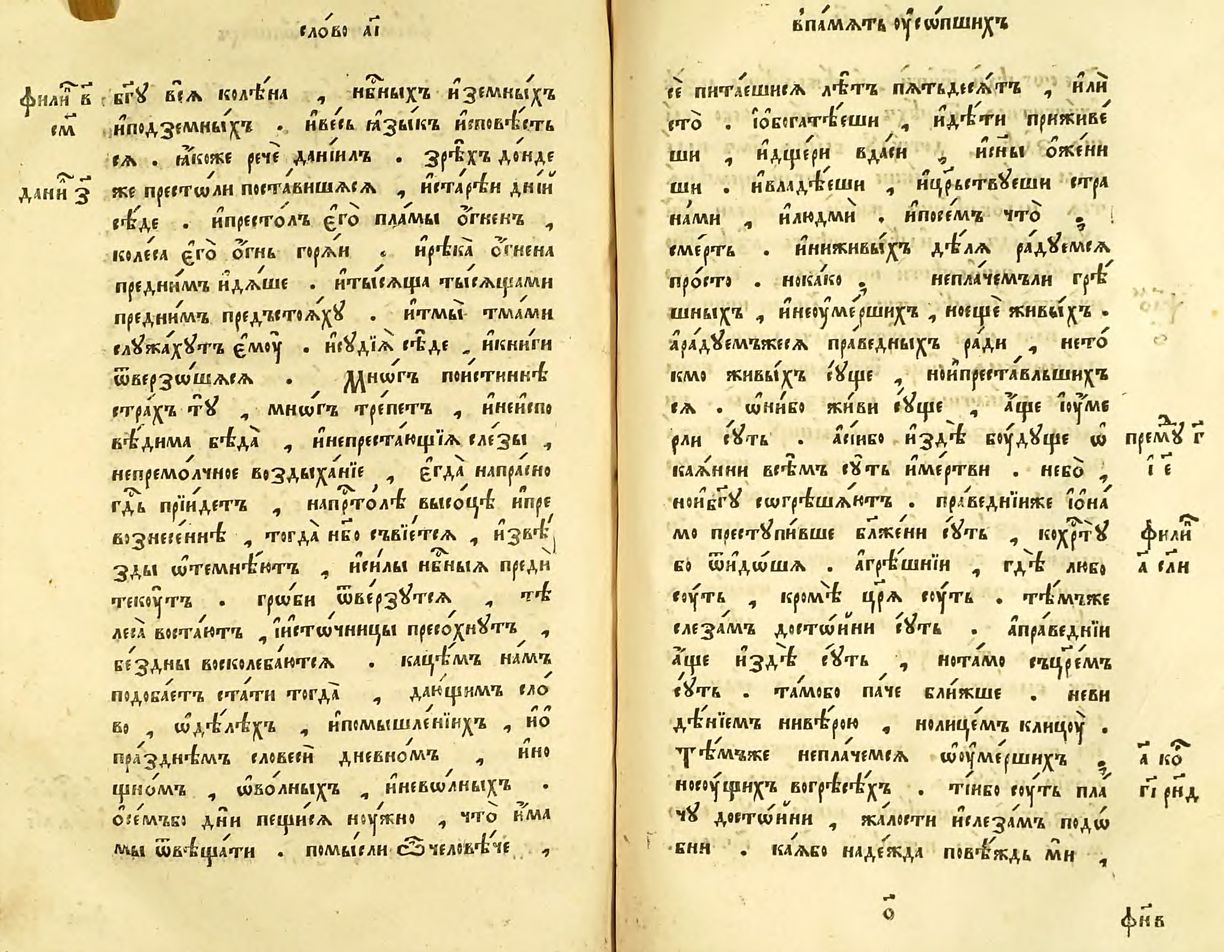 сло́во а҃і
фили҇ в҃ бг҃ꙋ всѧ колѣ́на , нб҇ныхъ и҆земны́хъ
см҃ и҆подземны́хъ . и҆ве́сь ꙗ҆зы́къ и҆сповѣ́сть
сѧ . ꙗ҆́коже речѐ данїи́лъ . зрѣ́хъ до́нде
дани҇ з҃ же престѡ́ли поста́вишасѧ , и҆ста́рѣи дні́й
сѣ́де . и҆престо́лъ є҆го̀ пла́мы ѻ҆́гненъ ,
коле́са є҆го̀ ѻ҆́гнь горѧ́и . и҆рѣка̀ ѻ҆́гнена
предни́мъ и҆дѧ́ше . и҆ты́сѧща ты́сѧщами
предни́мъ предъстоѧ́хꙋ . и҆тмы̀ тма́ми
слꙋжа́хꙋтъ є҆моу̀ . и҆сꙋдїѧ̀ сѣ́де , и҆кни́ги
ѿверзо́шасѧ . Мнѡ́гъ пои́стиннѣ
стра́хъ тꙋ̀ , мнѡ́гъ тре́петъ , и҆неиспо
вѣ́дима бѣда̀ , и҆непрестаю́щїѧ сле́зы ,
непремо́лчное воздыха́нїе , є҆гда̀ напра́сно
гдⷭ҇ь прїи́детъ , напрⷭ҇то́лѣ высо́цѣ и҆пре
вознесе́ннѣ , тогда̀ нб҃о съвїе́тсѧ , и҆звѣ́
зды ѡ҆темнѣ́ютъ , и҆си́лы нбⷭ҇ныѧ предѝ
текоу́тъ . гро́би ѿве́рзꙋтсѧ , тѣ
леса̀ воста́ютъ , и҆исто́чницы пресо́хнꙋтъ ,
бе́здны восколеба́ютсѧ . каце́мъ на́мъ
подоба́етъ ста́ти тогда̀ , даю́щимъ сло́
во , ѡ҆дѣ́лѣхъ , и҆помышле́нїихъ , и҆ѡ҆
пра́зднѣмъ словесѝ дневно́мъ , и҆но
щно́мъ , ѡ҆во́лныхъ , и҆нево́лныхъ .
ѻ҆се́мъбо дн҃и пещи́сѧ ноу́жно , что̀ и҆́ма
мы ѿвѣща́ти . помы́сли ѽ человѣ́че ,
впа́мѧть оу҆со́пшихъ
сѐ пита́ешисѧ лѣ́тъ пѧтьдесѧ́тъ , и҆лѝ
сто̀ . і҆обогатѣ́еши , и҆дѣ́ти приживе́
ши , и҆дще́ри вда́си , и҆сн҃ы ѻ҆жени
ши . и҆владѣ́еши , и҆црⷭ҇ьствꙋеши стра
на́ми , и҆людмѝ . и҆посе́мъ что̀ ;
сме́рть . и҆ниживы́хъ дѣ́лѧ ра́дꙋемсѧ
про́сто . нока́ко ; непла́чемъли грѣ́
шныхъ , и҆неоуме́ршихъ , ноещѐ живы́хъ .
а҆ра́дꙋемъжесѧ пра́ведныхъ ра́ди , нето́
кмо живы́хъ сꙋ́ще , нои҆преста́вльшихъ
сѧ . ѡ҆ни́бо жи́ви сꙋ́ще , а҆́ще і҆оу́ме
рли сꙋ́ть . а҆сі́ибо и҆здѣ̀ боу́дꙋще ѡ҆ премⷣꙋ г҃
каѧ́нни всѣ́мъ сꙋ́ть и҆ме́ртви . небо̀ , і҃ є҃
нои҆бг҃ꙋ согрѣша́ютъ . пра́веднїиже і҆ѻна́
мо престꙋпи́вше бл҃же́ни сꙋ́ть , кохрⷭ҇тꙋ̀ фили҇
бо ѿидо́ша . а҆грѣ́шнїи , гдѣ̀ лю́бо а҃ сли
соу́ть , кромѣ̀ цр҃ѧ̀ соу́ть . тѣ́мъже
слеза́мъ досто́йни сꙋ́ть . а҆пра́веднїи
а҆́ще и҆здѣ̀ сꙋ́ть , нота́мо съцр҃е́мъ
сꙋ́ть . та́мобо па́че бли́жше . неви
дѣ́нїемъ нивѣ́рою , нолице́мъ клицоу̀ .
Тѣ́мъже непла́чемсѧ ѡ҆оуме́ршихъ , а҃ ко҇
носоу́щихъ вогрѣсѣ́хъ . ті́ибо соу́ть пла́ г҃і рн҃д
чꙋ̀ досто́йни , жа́лости и҆слеза́мъ подо́
бни . ка́ѧбо наде́жда повѣ́ждь мѝ ,
о҃
фн҃в